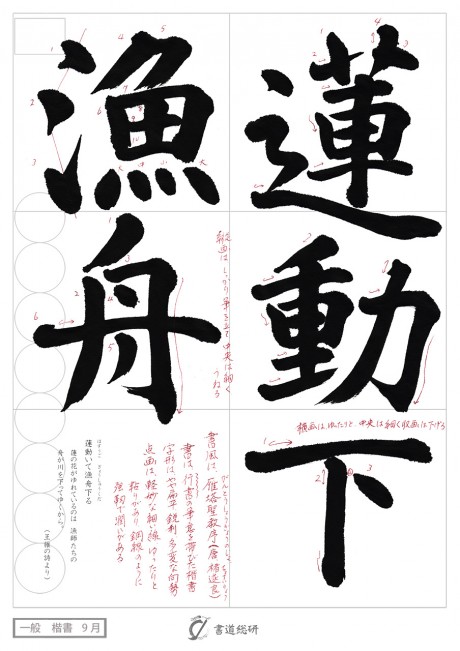 蓮動下
漁舟
横画は、ゆったりと、中央は細く収画は下げる
縦画は、しっかり筆を立て中央は細くうねる
書風は、雁塔聖教序(唐 褚遂良)
がんとうしょうぎょうじょ
書は、行書の筆意を帯びた楷書
字形は、やや扁平 鋭利 多変な向勢
点画は、軽妙な細い線 ゆったりと
粘りがあり 鋼線のように
強靭で潤いがある
はすうごいて ぎょしゅうくだる
蓮動いて漁舟下る
蓮の花がゆれているのは 漁師たちの
舟が川を下ってゆくから。
(王維の詩より)
一般 楷書 9月
書道総研